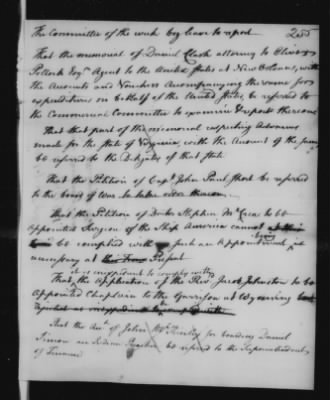 The Committee of the week beg leave to report
255
That the memorial of Daniel Clark attorney to Oliver
Pollock Esqr. Agent to the United States at New Orleans, with
the Accounts and Vouchers Accompanying the same for
expenditures on behalf of the United States, be referred to
the Commercial Committee to examine & report thereon
That that part of the memorial respecting Advances
made for the State of Virginia, with the Account of the same
be referred to the Delegates of that State
That the Petition of Capt. John Paul Shott be referred
to the board of War to take order thereon
That the Petition of Doctr Stephen McCrea to be
appointed Surgeon of the Ship America cannot at this
time be complied with such an Appointment
being
necessary at this time Present
it is inexpedient to comply with
That the Application of the Revd. Jacob Johnston to be
Appointed Chaplain to the Garrison at Wyoming
That the Acct. of John for boarding Daniel
Simon an Indian be referred to the Superintendent
of Finance